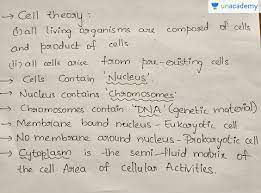 unacademy
→ Cell theory :
(i) all living organisms are composed of cells
and product of cells
(ii) all cells arise from pre-existing cells
→ Cells Contain 'Nucleus'.
→ Nucleus contains 'Chromosomes'
→ Chromosomes contain 'DNA' (genetic material)
→ Membrane bound nucleus - Eukaryotic cell
→ No membrane around nucleus - Prokaryotic cell
→ Cytoplasm is the semi-fluid matrix of
the cell Area of Cellular Activities.